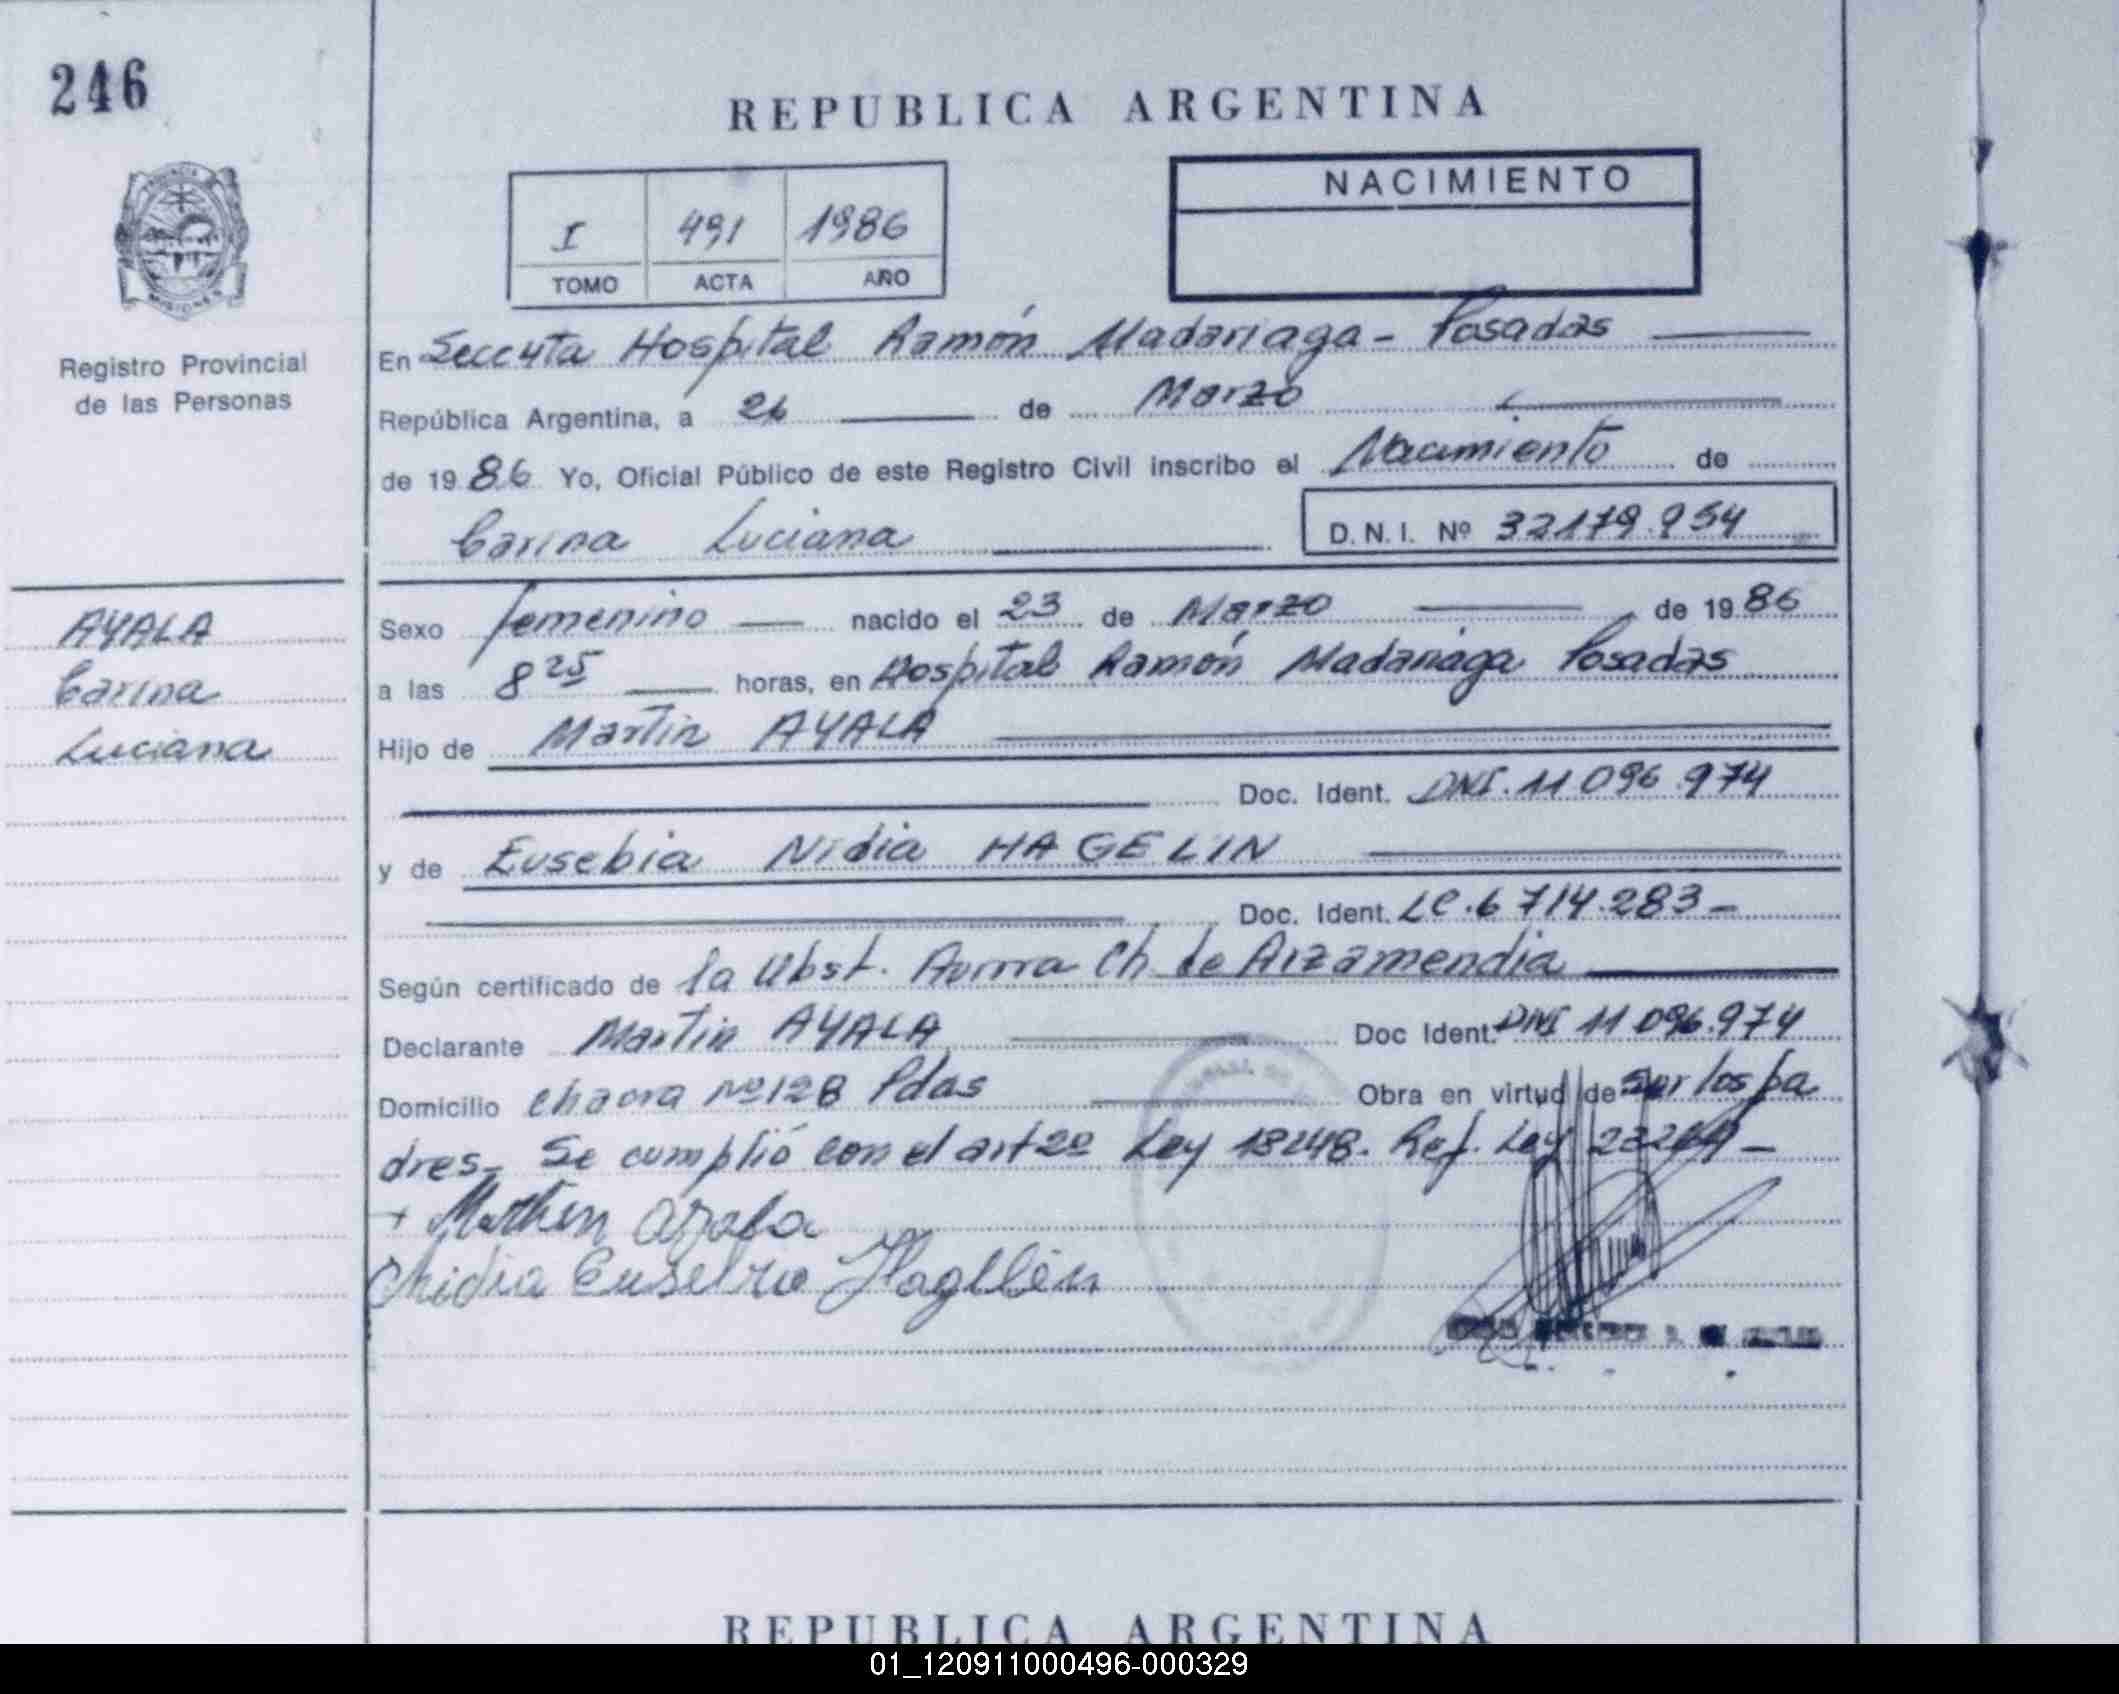 246
REPUBLICA ARGENTINA
I 491 1986
TOMO ACTA AÑO
NACIMIENTO
Registro Provincial
de las Personas
En Hospital Ramón Madariaga - Posadas
República Argentina, a 26 de Marzo
de 19 86 Yo, Oficial Público de este Registro Civil inscribo el Nacimiento de
Carina Luciana
D.N.I. Nº 32179.954
AYALA
Carina
Luciana
Sexo femenino nacido el 23 de Marzo de 19 86
a las 8 25 horas, en Hospital Ramón Madariaga Posadas
Hijo de Martin AYALA
Doc. Ident. DNI. 11 096.974
y de Eusebia Nidia HAGELIN
Doc. Ident. LC. 6 714.283-
Según certificado de la Obst. Aurora Ch. de Arzamendia
Declarante Martin AYALA Doc Ident. DNI 11 096.974
Domicilio chacra Nº 128 Pdas Obra en virtud de ser los pa
dres- Se cumplió con el art 2º Ley 18248. Ref. Ley 23264-
Nidia Hagellin
REPUBLICA ARGENTINA
01_120911000496-000329